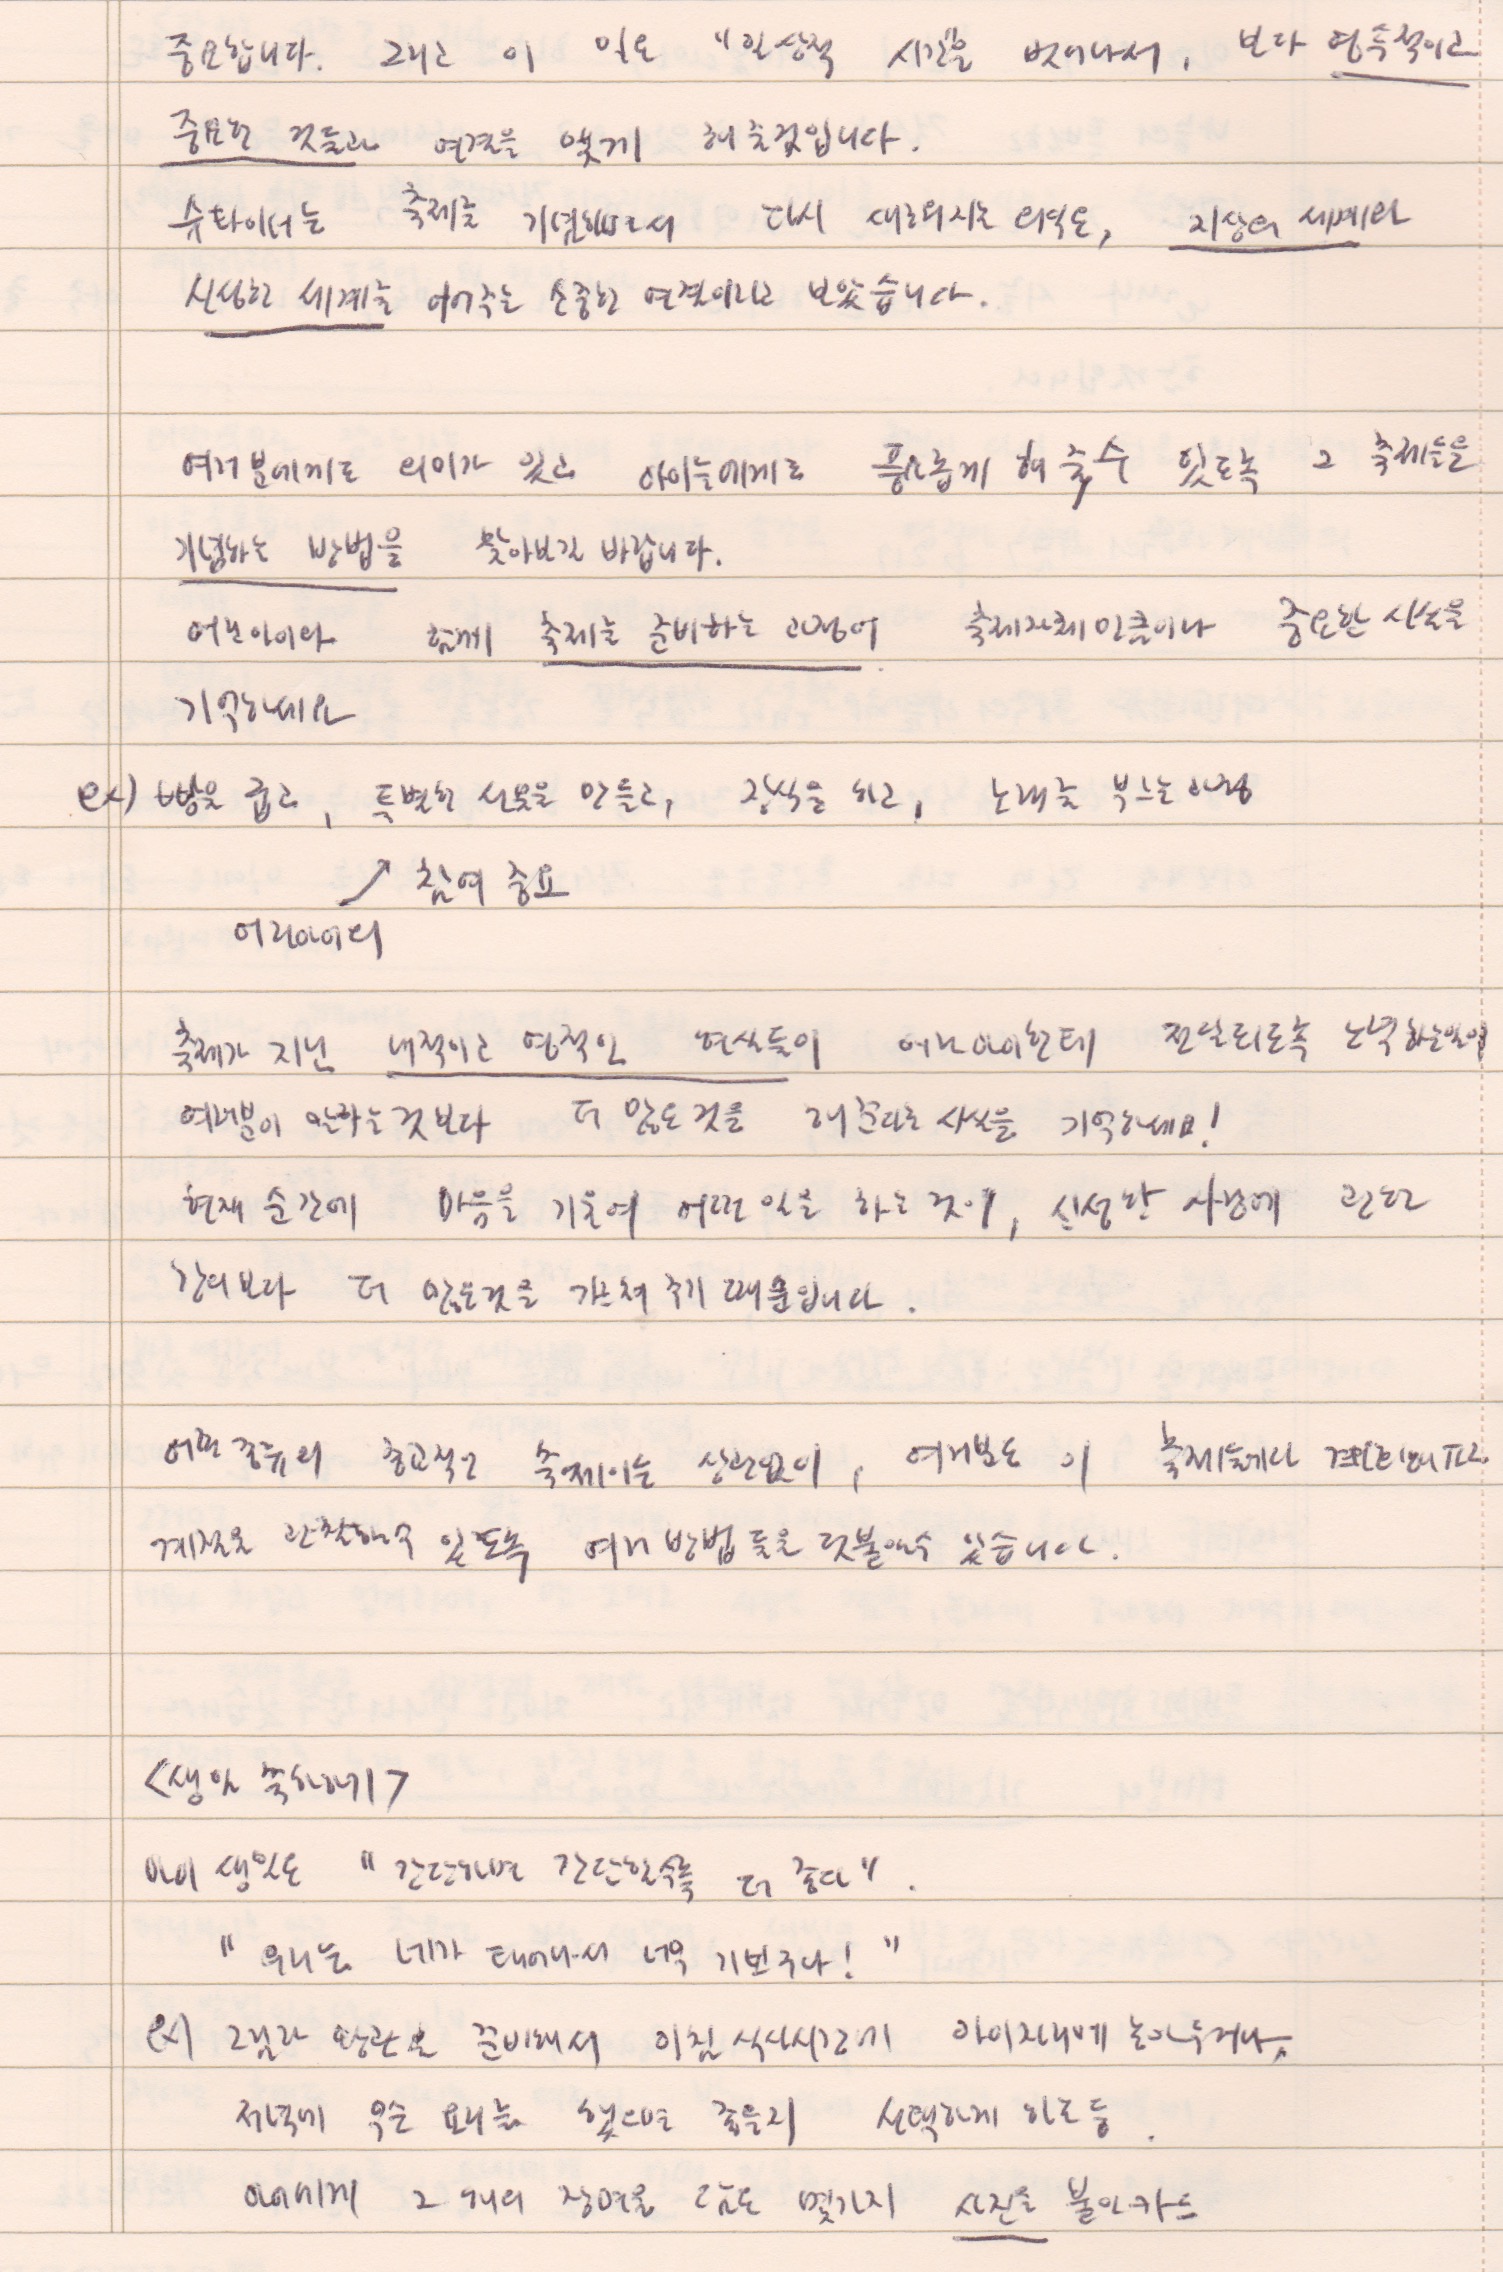 중요합니다. 그리고 이 일은 "일상적 시간을 벗어나서, 보다 영속적이고
중요한 것들과 연결을 맺게 해줄것입니다.
슈타이너는 축제를 기념함으로서 다시 새로워지는 의식은, 지상의 세계와
신성한 세계를 이어주는 소중한 연결이라고 보았습니다.
여러분에게도 의미가 있고 아이들에게도 풍요롭게 해 줄 수 있도록 그 축제들을
기념하는 방법을 찾아보길 바랍니다.
어린아이와 함께 축제를 준비하는 과정이 축제자체만큼이나 중요한 사실을
기억하세요
ex) 빵을 굽고, 특별한 선물을 만들고, 장식을 하고, 노래를 부르는 과정
↗ 참여 중요
어린아이의
축제가 지닌 내적이고 영적인 현실들이 어린아이한테 전달되도록 노력하는일이
여러분이 말하는것보다 더 많은 것을 해준다는 사실을 기억하세요!
현재 순간에 마음을 기울여 어떤 일을 하는 것이, 신성한 사랑에 관한
강의보다 더 많은것을 가르쳐 주기 때문입니다.
어떤 종류의 종교적인 축제이든 상관없이, 여러분은 이 축제들에다
계절을 관찰할수 있도록 여러 방법들을 덧붙일수 있습니다.
<생일 축하하기>
아이 생일은 "간단하면 간단할수록 더 좋다".
"우리는 네가 태어나서 너무 기쁘구나!"
ex) 그림과 왕관을 준비해서 아침 식사시간에 아이자리에 놓아두거나,
저녁에 무슨 요리를 했으면 좋을지 선택하게 하는등.
아이에게 그 개의 장면을 담은 몇가지 사진을 붙인 카드